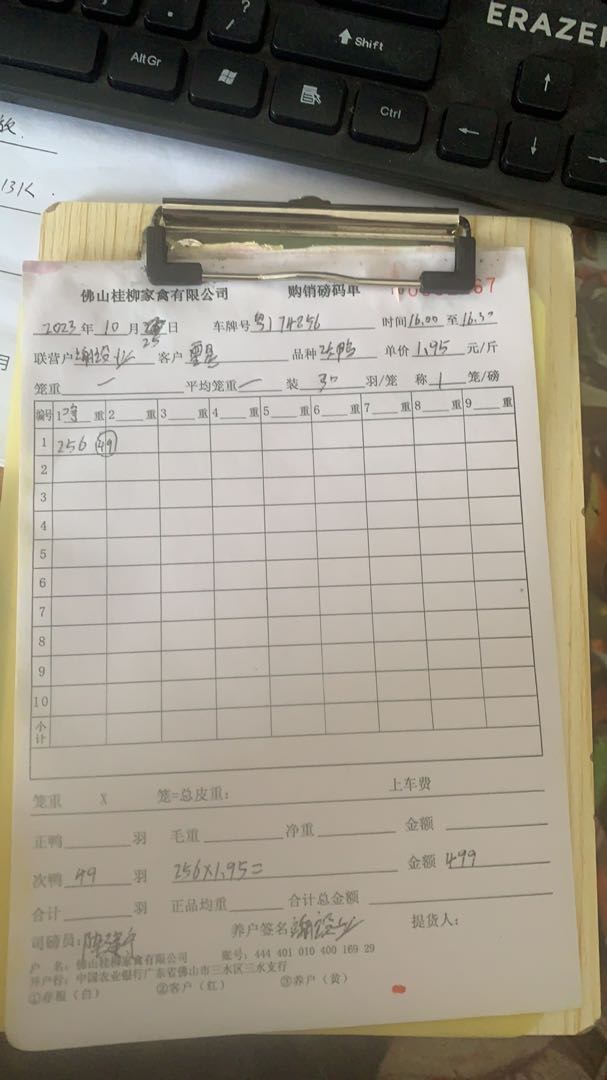 ?
/
ERAZER
AltGr
Shift
Ctrl
佛山桂柳家禽有限公司 购销磅码单
2023年 10月 25日 车牌号 时间16.00 至16.30
联营户 客户 品种 次鸭 单价 1.95 元/斤
笼重 一 平均笼重 一 装 羽/笼 称 1 笼/磅
编号 1 重 2 重 3 重 4 重 5 重 6 重 7 重 8 重 9 重
1 256 49
2
3
4
5
6
7
8
9
10
小计
笼重 X 笼=总皮重: 上车费
正鸭 羽 毛重 净重 金额
次鸭 49 羽 256×1.95= 金额 499
合计 羽 正品均重 合计总金额
司磅员: 养户签名 提货人:
户 名: 佛山桂柳家禽有限公司 账号: 444 401 010 400 169 29
开户行: 中国农业银行广东省佛山市三水区三水支行
①存根(白) ②客户(红) ③养户(黄)